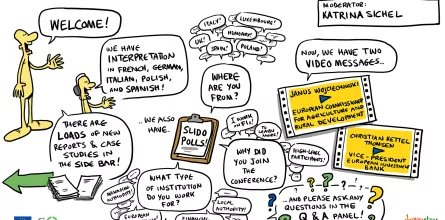 MODERATOR:
KATRINA SICHEL
WELCOME!
WE HAVE
INTERPRETATION
IN FRENCH, GERMAN,
ITALIAN, POLISH,
AND SPANISH!
THERE ARE
LOADS OF NEW
REPORTS & CASE
STUDIES IN
THE SIDE BAR!
..WE ALSO
HAVE..
SLIDO
POLLS!
ITALY!
LUXEMBOURG!
UK!
HUNGARY!
SPAIN!
POLAND!
WHERE
ARE YOU
FROM?
WHY DID
YOU JOIN
THE
CONFERENCE?
LEARN
MORE!
HIGH-LEVEL
PARTICIPANTS!
WHAT TYPE
OF INSTITUTION
DO YOU WORK
FOR?
MANAGING
AUTHORITY!
EUROPEAN
LOCAL
AUTHORITY!
FINANCIAL
NOW, WE HAVE TWO
VIDEO MESSAGES...
JANUSZ WOJCIECHOWSKI
EUROPEAN COMMISSIONER
FOR AGRICULTURE AND
RURAL DEVELOPMENT.
CHRISTIAN KETTEL
THOMSEN
VICE-PRESIDENT
EUROPEAN INVESTMENT
BANK
...AND PLEASE ASK ANY
QUESTIONS IN THE
Q & A PANEL!